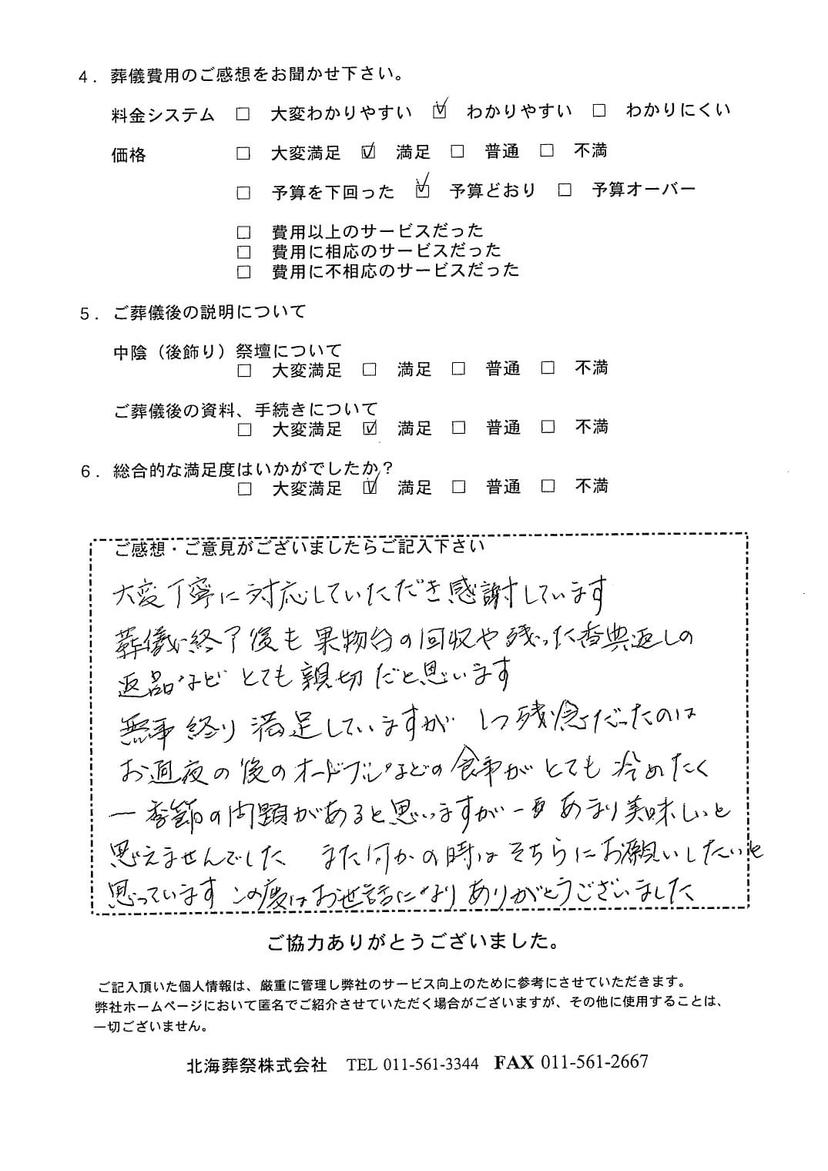 4．葬儀費用のご感想をお聞かせ下さい。
料金システム □ 大変わかりやすい ☑ わかりやすい □ わかりにくい
価格 □ 大変満足 ☑ 満足 □ 普通 □ 不満
□ 予算を下回った ☑ 予算どおり □ 予算オーバー
□ 費用以上のサービスだった
□ 費用に相応のサービスだった
□ 費用に不相応のサービスだった
5．ご葬儀後の説明について
中陰（後飾り）祭壇について
□ 大変満足 □ 満足 □ 普通 □ 不満
ご葬儀後の資料、手続きについて
□ 大変満足 ☑ 満足 □ 普通 □ 不満
6．総合的な満足度はいかがでしたか？
□ 大変満足 ☑ 満足 □ 普通 □ 不満
ご感想・ご意見がございましたらご記入下さい
大変丁寧に対応していただき感謝しています
葬儀終了後も果物台の回収や残った香典返しの
返品など とても親切だと思います
無事終り満足していますが 1つ残念だったのは
お通夜の後のオードブルなどの食事がとても冷めたく
季節の問題があると思いますが あまり美味しいと
思えませんでした また何かの時はそちらにお願いしたいと
思っています この度はお世話になりありがとうございました
ご協力ありがとうございました。
ご記入頂いた個人情報は、厳重に管理し弊社のサービス向上のために参考にさせていただきます。
弊社ホームページにおいて匿名でご紹介させていただく場合がございますが、その他に使用することは、
一切ございません。
北海葬祭株式会社 TEL 011-561-3344 FAX 011-561-2667